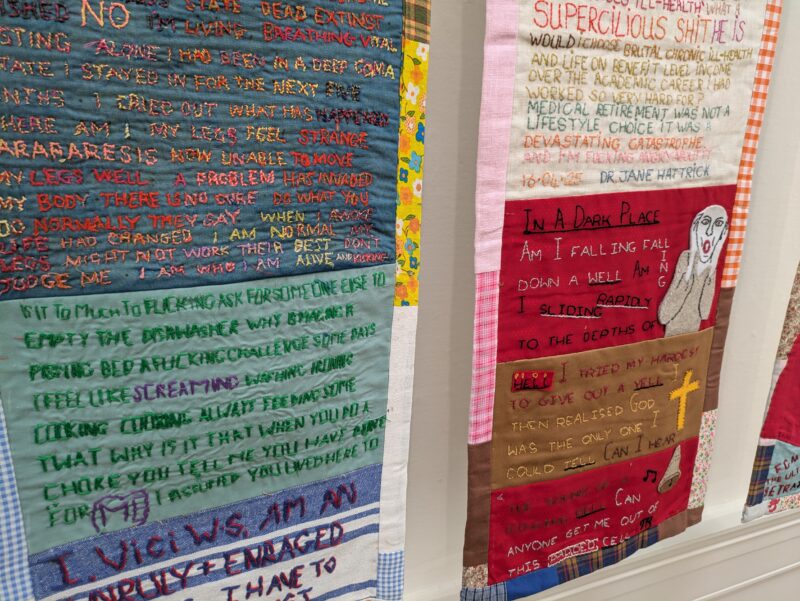 NO STATE DEAD EXTINCT
I'M LIVING, BREATHING VITAL
ALONE I HAD BEEN IN A DEEP COMA
STATE I STAYED IN FOR THE NEXT FIVE
I CRIED OUT WHAT HAS HAPPENED
WHERE AM I MY LEGS FEEL STRANGE
NOW UNABLE TO MOVE
MY LEGS WELL A PROBLEM HAS INVADED
MY BODY THERE IS NO CURE DO WHAT YOU
DO NORMALLY THEY SAY WHEN I AWOKE
LIFE HAD CHANGED I AM NORMAL MY
LEGS MIGHT NOT WORK THEIR BEST DON'T
JUDGE ME I AM WHO I AM ALIVE AND KICKING
IS IT TO MUCH TO FUCKING ASK FOR SOMEONE ELSE TO
EMPTY THE DISHWASHER WHY
BED A FUCKING CHALLENGE SOME DAYS
I FEEL LIKE SCREAMING WASHING IRONING
COOKING ALWAYS FEEDING SOME
TWAT WHY IS IT THAT WHEN YOU DO A
CHORE YOU TELL ME YOU HAVE DONE
FOR ME I ASSUMED YOU LIVED HERE TO
I. VICI WS. AM AN
UNRULY + ENRAGED
I HAVE TO
ILL-HEALTH WHAT A
SUPERCILIOUS SHIT HE IS
WOULD I CHOOSE BRUTAL CHRONIC ILL-HEALTH
AND LIFE ON BENEFIT LEVEL INCOME
OVER THE ACADEMIC CAREER I HAD
WORKED SO VERY HARD FOR?
MEDICAL RETIREMENT WAS NOT A
LIFESTYLE CHOICE IT WAS A
DEVASTATING CATASTROPHE
AND I'M FUCKING ANGRY ABOUT IT
16-04-25 DR. JANE HATTRICK
IN A DARK PLACE
AM I FALLING FALL
ING
DOWN A WELL AM
I SLIDING RAPIDLY
TO THE DEPTHS OF
HELL I TRIED MY HARDEST
TO GIVE OUT A YELL I
THEN REALISED GOD
WAS THE ONLY ONE I
COULD TELL CAN I HEAR
THE OF A
BELL CAN
ANYONE GET ME OUT OF
THIS PADDED CELL